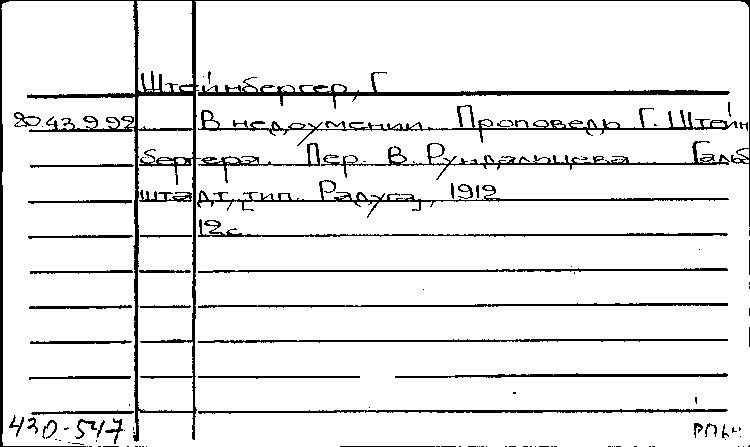 Штейнбергер, Г
20.43.9.92 В недоумении. Проповедь Г. Штейн
бергера. Пер. В. Рундальцева. Гальб
штадт, [тип. Радуга], 1912
12с.
430-547